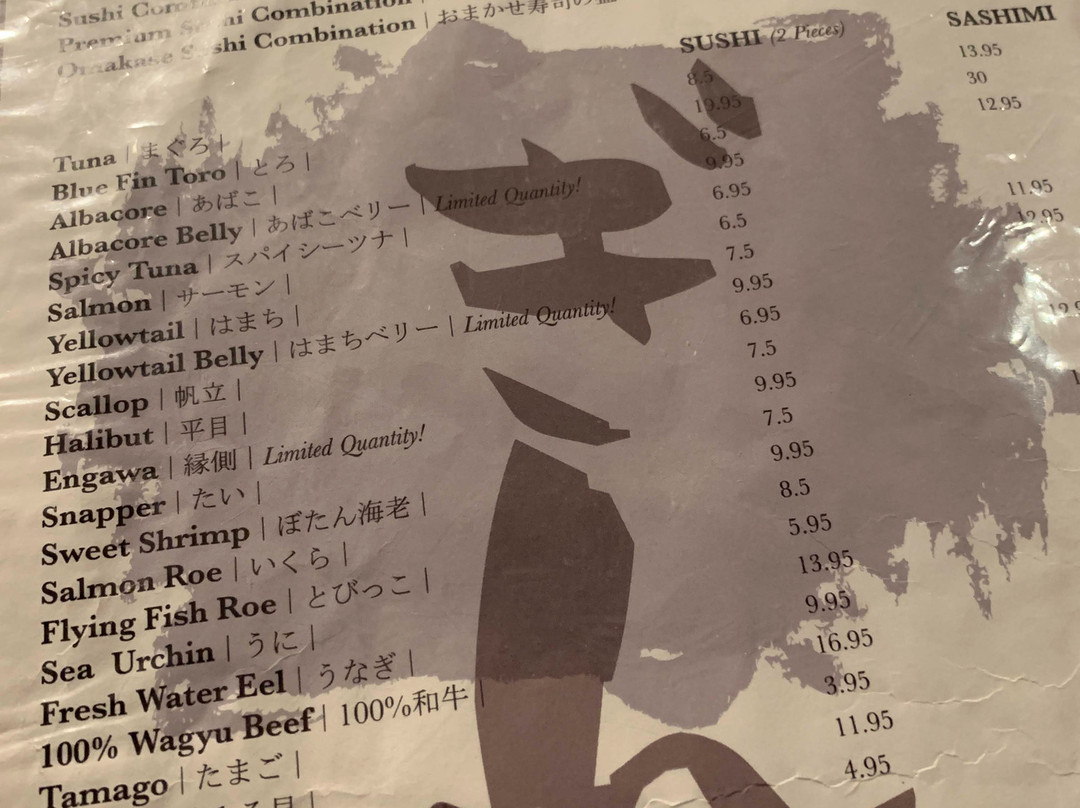 Sushi
Premium Sushi Combination
Omakase Sushi Combination | おまかせ寿司の
SUSHI (2 Pieces) SASHIMI
Tuna | まぐろ | 8.5 13.95
Blue Fin Toro | とろ | 19.95 30
Albacore | あばこ | 6.5 12.95
Albacore Belly | あばこベリー | Limited Quantity! 9.95
Spicy Tuna | スパイシーツナ | 6.95
Salmon | サーモン | 6.5 11.95
Yellowtail | はまち | 7.5 12.95
Yellowtail Belly | はまちベリー | Limited Quantity! 9.95
Scallop | 帆立 | 6.95
Halibut | 平目 | 7.5
Engawa | 縁側 | Limited Quantity! 9.95
Snapper | たい | 7.5
Sweet Shrimp | ぼたん海老 | 9.95
Salmon Roe | いくら | 8.5
Flying Fish Roe | とびっこ | 5.95
Sea Urchin | うに | 13.95
Fresh Water Eel | うなぎ | 9.95
100% Wagyu Beef | 100%和牛 | 16.95
Tamago | たまご | 3.95
11.95
4.95